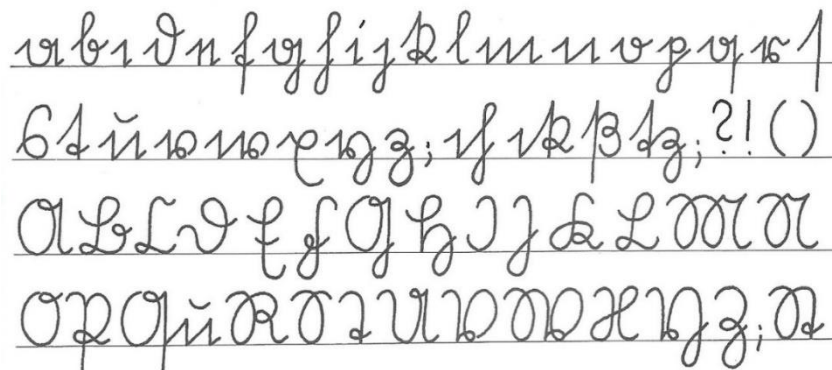 a b c d e f g h i j k l m n o p q r ſ
s t u v w x y z ; ch ck ß tz ; ? ! ( )
A B C D E F G H I J K L M N
O P Qu R S T U V W X Y Z ; St